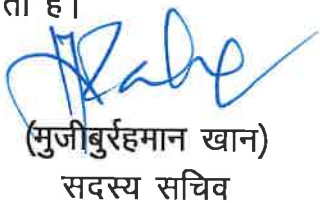 ता है।
(मुजीबुर्रहमान खान)
सदस्य सचिव